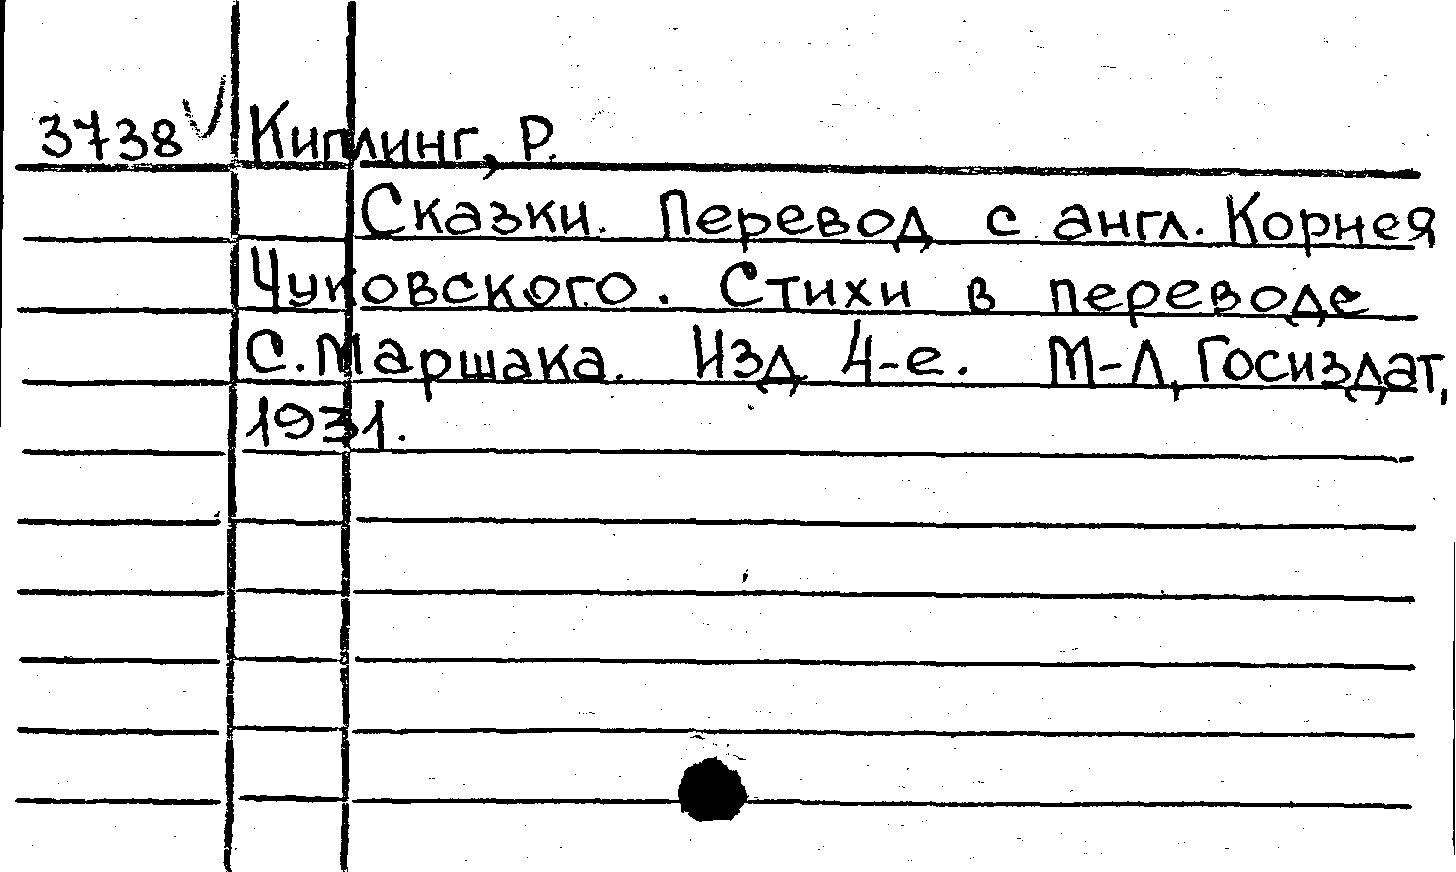 3738 Киплинг, Р.
Сказки. Перевод с англ. Корнея
Чуковского. Стихи в переводе
С. Маршака. Изд. 4-е. М-Л, Госиздат,
1931.